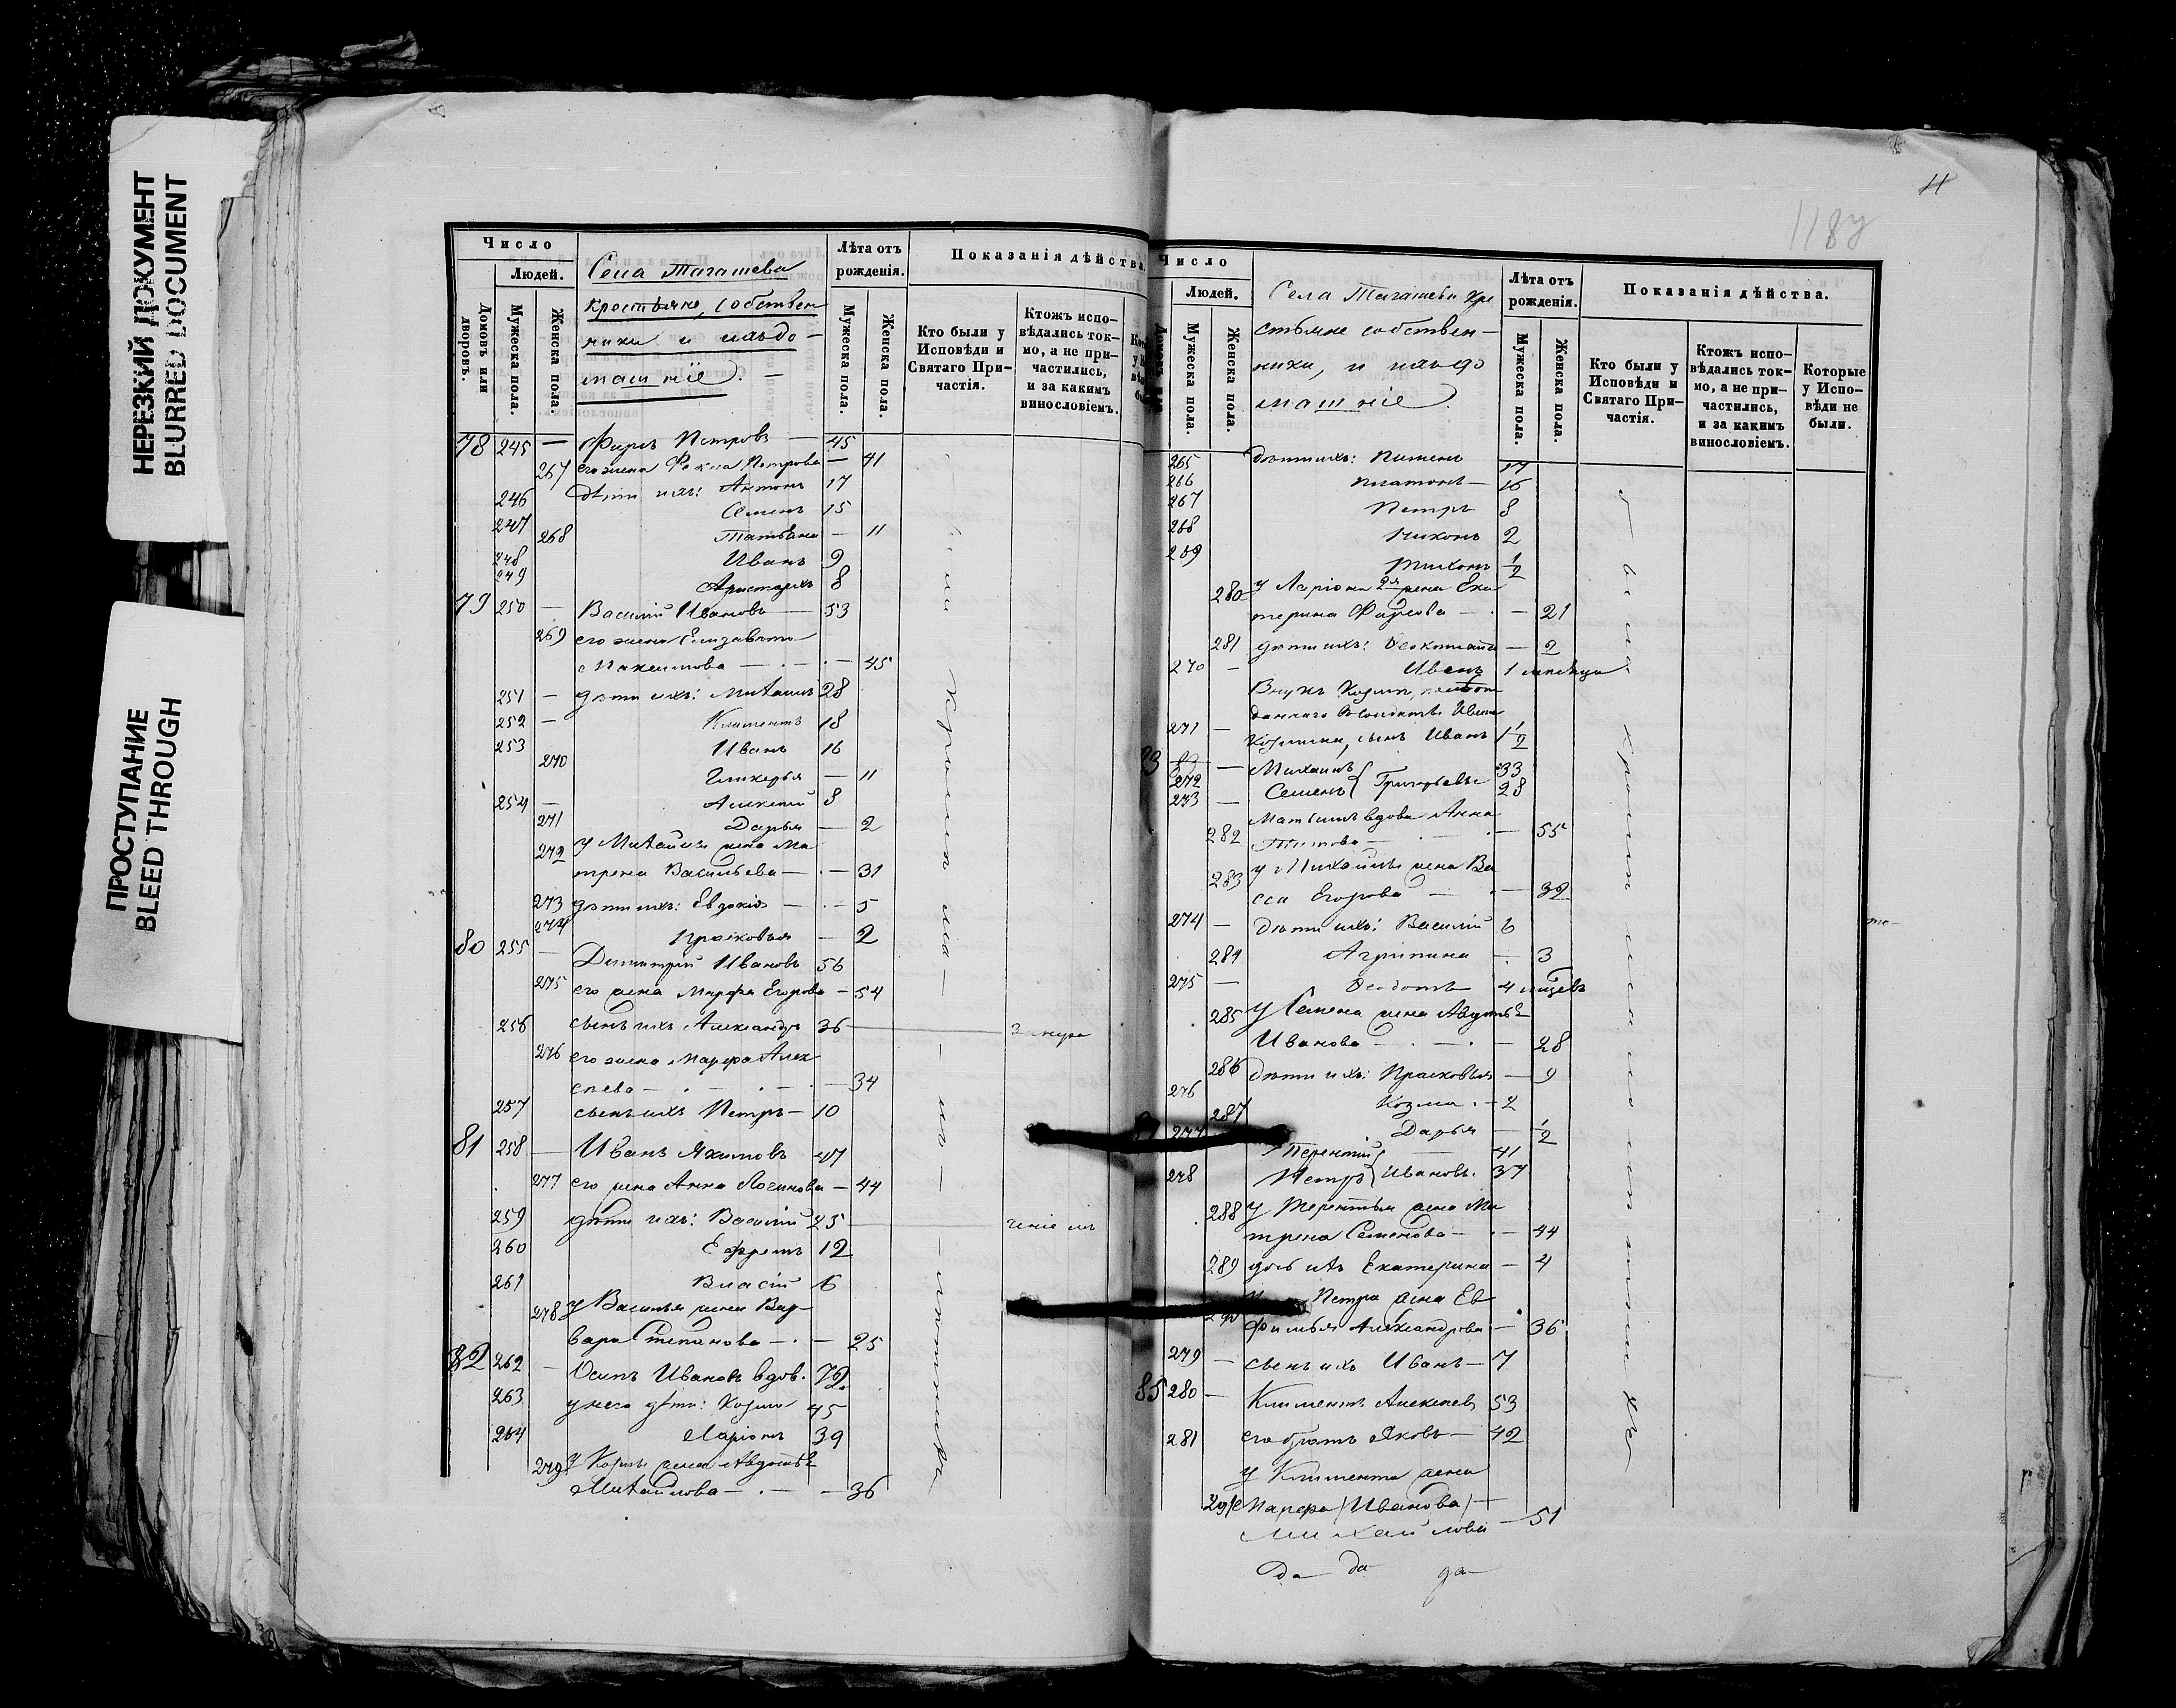 НЕРЕЗКИЙ ДОКУМЕНТ
BLURRED DOCUMENT
ПРОСТУПАНИЕ
BLEED THROUGH
Число
Людей.
Домовъ или дворовъ.
Мужеска пола.
Женска пола.
Села Тагашева
крестьяне, собствен-
ники и ихъ до-
машніе.
Лѣта отъ рожденія.
Мужеска пола.
Женска пола.
Показанія дѣйства.
Кто были у Исповѣди и Святаго При-частія.
Ктожъ испо-вѣдались ток-мо, а не при-частились, и за какимъ винословіемъ.
78 245 — Фирсъ Петровъ — 45
267 его жена Фекла Петрова — 41
246 дѣти ихъ: Антонъ 17
247 Семенъ 15
268 Татьяна — 11
248 Иванъ 9
249 Аристархъ 8
79 250 — Василій Ивановъ — 53
269 его жена Елизавета
Максимова — 45
251 — дѣти ихъ: Михаилъ 28
252 — Климентъ 18
253 Иванъ 16
270 Гликерья — 11
254 — Алексѣй 8
271 Дарья — 2
272 у Михаила жена Ма
трена Васильева — 31
273 дѣти ихъ: Евдокія — 5
274 Прасковья — 2
80 255 — Димитрій Ивановъ 56
275 его жена Марфа Егорова — 54
256 сынъ ихъ Александръ 36
276 его жена Марфа Алек
сѣева — 34
257 сынъ ихъ Петръ — 10
81 258 — Иванъ Якимовъ 47
277 его жена Анна Логинова — 44
259 дѣти ихъ: Василій 25
260 Ефремъ 12
261 Власій 6
278 у Василья жена Вар-
вара Степанова — 25
82 262 — Осипъ Ивановъ вдов. 72
263 у него дѣти: Козма 45
264 Ларіонъ 39
279 у Козмы жена Авдотья
Михайлова — 36
11
Число
Людей.
Мужеска пола.
Женска пола.
Села Тагашева кре
стьяне собствен-
ники, и ихъ до
машніе.
Лѣта отъ рожденія.
Мужеска пола.
Женска пола.
Показанія дѣйства.
Кто были у Исповѣди и Святаго При-частія.
Ктожъ испо-вѣдались ток-мо, а не при-частились, и за какимъ винословіемъ.
Которые у Испо-вѣди не были.
265 дѣти ихъ: Пименъ 17
266 Платонъ — 16
267 Петръ 8
268 Никонъ 2
269 Тихонъ 1/2
280 у Ларіона 2я жена Ека
терина Фирсова — 21
281 дѣти ихъ: — 2
270 — Иванъ 1 мѣсяца
Внукъ Козмы,
Ивана
271 — Козмина, сынъ Иванъ 1 1/2
272 — Михаилъ 33
273 — Семенъ } Григорьевы 28
Мать ихъ вдова Анна
282 Титова — 55
283 у Михаила жена Ва
сса Егорова — 32
274 — Дѣти ихъ: Василій 6
284 Агрипина — 3
275 — Ѳеодотъ 4 мѣсяцевъ
285 у Семена жена Авдотья
Иванова — 28
286 дѣти ихъ: Прасковья — 9
276 Козма — 2
287 Дарья — 1/2
277 Терентій 41
278 Петръ } Ивановы. 37
288 у Терентья жена Ма
трена Семенова — 44
289 дочь ихъ Екатерина — 4
290 у Петра жена Ев
фимья Александрова — 36
279 — сынъ ихъ Иванъ — 7
85 280 — Климентъ Алексѣевъ 53
281 его братъ Яковъ — 42
у Климента жена
291 Марфа (Иванова)
Михайлова — 51
Да да да